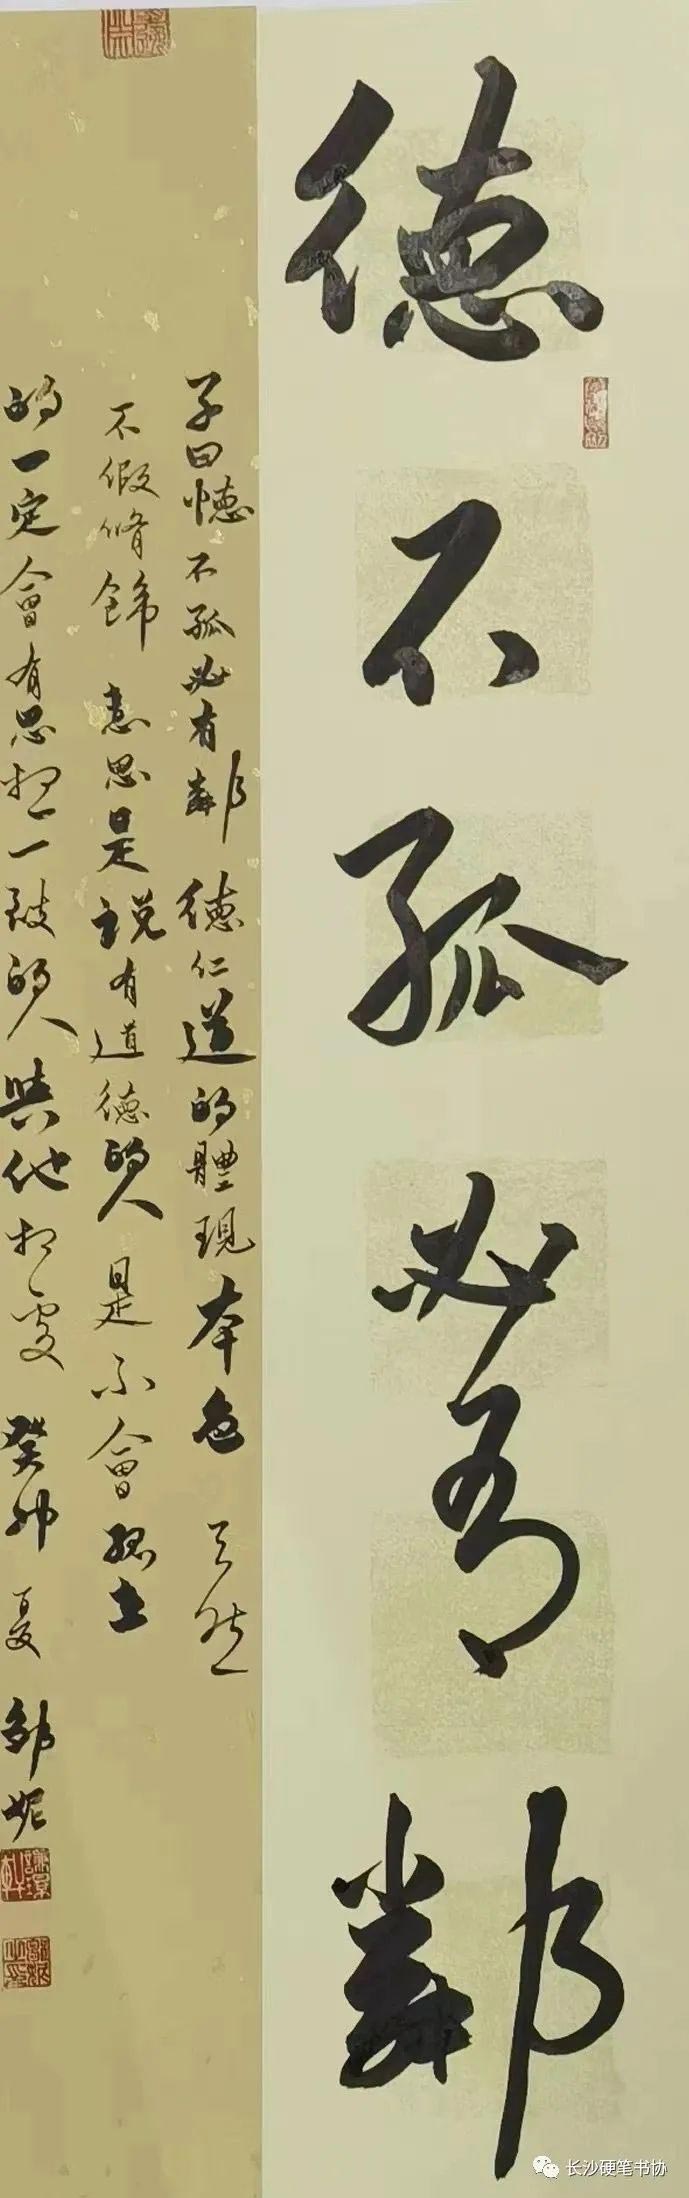 德不孤必有鄰
子曰德不孤必有鄰德仁道的體現本色天然
不假脩飾意思是說有道德的人是不會孤立
的一定會有思想一致的人與他相處癸卯夏鄒妮
长沙硬笔书协